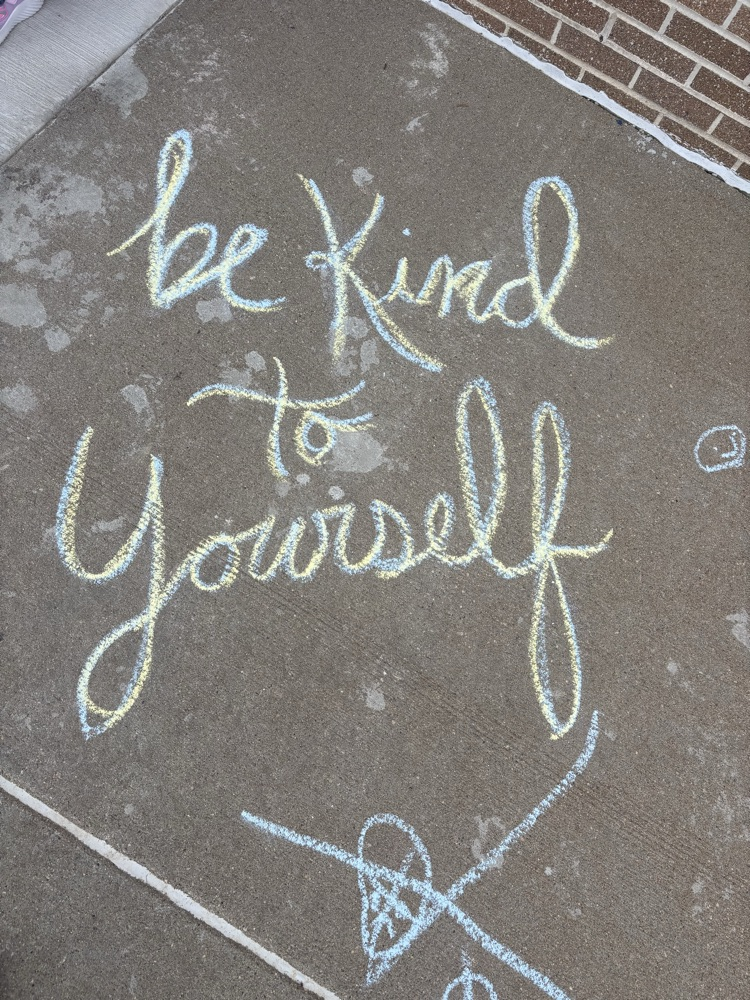 be Kind
to
Yourself